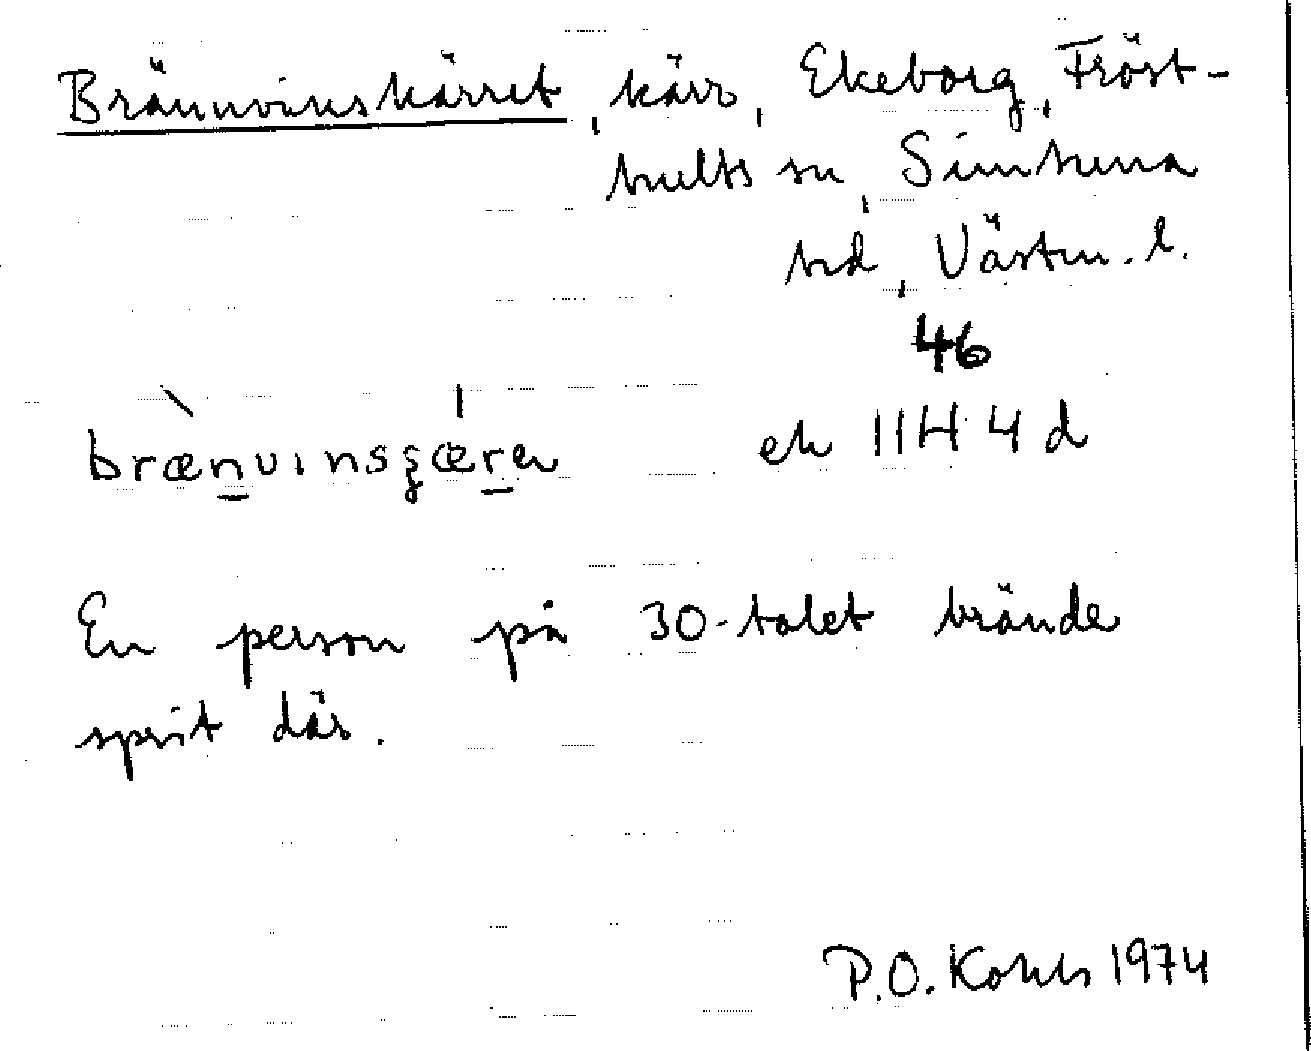 Brännvinskärret, kärr, Ekeborg, Fröst-
hults sn, Simtuna
hd, Västm. l.
46
brænvinsgæra
ek 11H 4 d
En person på 30-talet brände
sprit där.
P.O. 1974